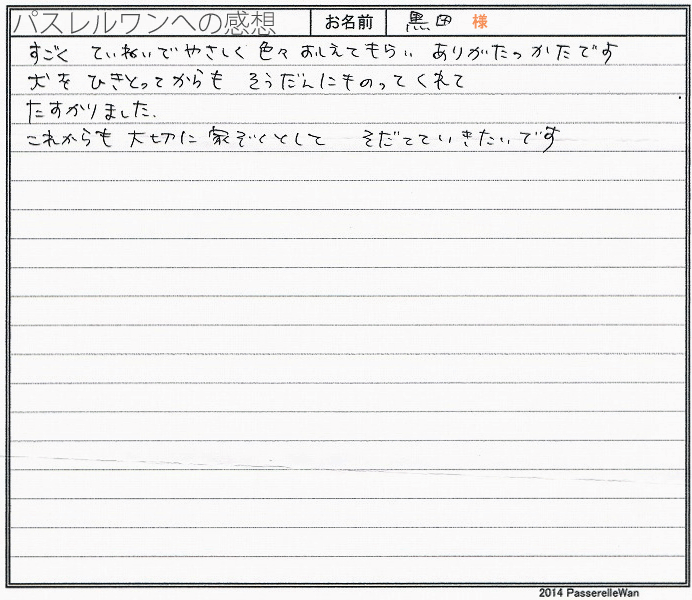 パスレルワンへの感想 お名前 黒田 様
すごく ていねいでやさしく 色々おしえてもらい ありがたっかたです
犬を ひきとってからも そうだんにものってくれて
たすかりました.
これからも 大切に 家ぞくとして そだてていきたいです
2014 PasserelleWan